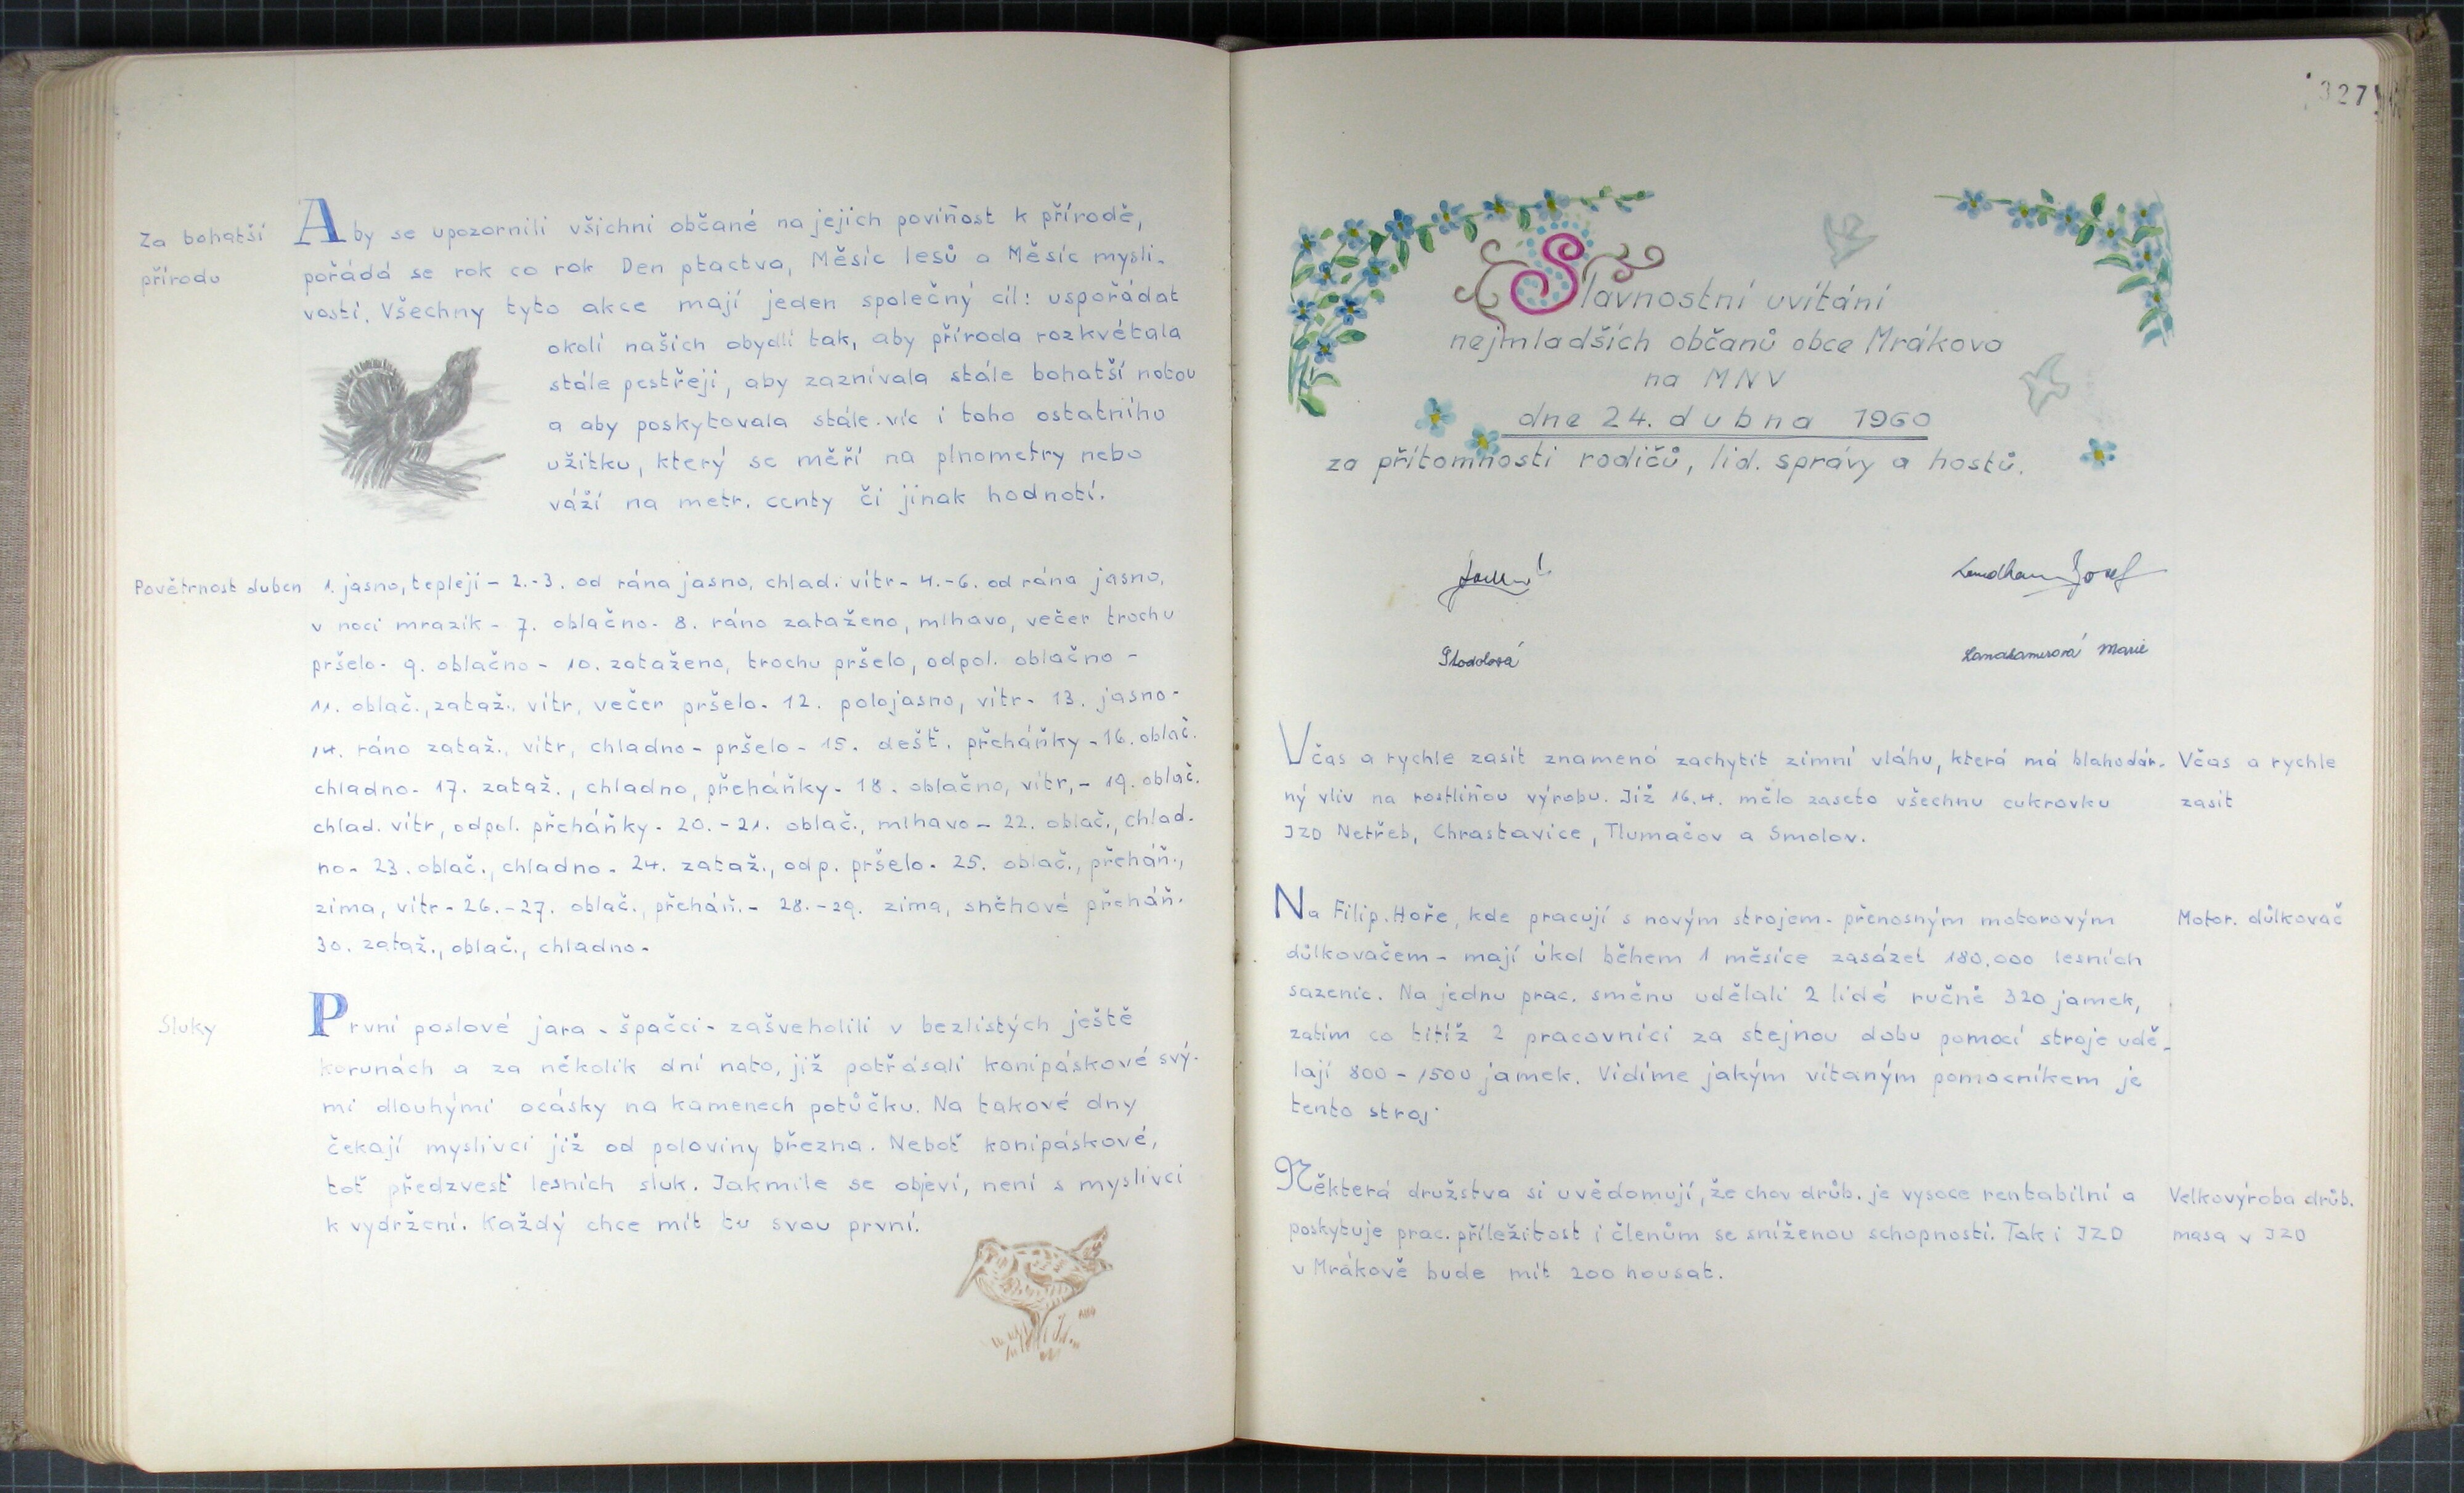 Za bohatší
přírodu
Aby se upozornili všichni občané na jejich poviňost k přírodě,
pořádá se rok co rok Den ptactva, Měsíc lesů a Měsíc mysli-
vosti. Všechny tyto akce mají jeden společný cíl: uspořádat
okolí našich obydlí tak, aby příroda rozkvétala
stále pestřeji, aby zaznívala stále bohatší notou
a aby poskytovala stále víc i toho ostatního
užitku, který se měří na plnometry nebo
váží na metr. centy či jinak hodnotí.
Povětrnost duben
1. jasno, tepleji - 2.-3. od rána jasno, chlad. vítr - 4.-6. od rána jasno,
v noci mrazík - 7. oblačno - 8. ráno zataženo, mlhavo, večer trochu
pršelo - 9. oblačno - 10. zataženo, trochu pršelo, odpol. oblačno -
11. oblač., zataž., vítr, večer pršelo - 12. polojasno, vítr - 13. jasno -
14. ráno zataž., vítr, chladno - pršelo - 15. dešť. přeháňky - 16. oblač.
chladno - 17. zataž., chladno, přeháňky - 18. oblačno, vítr, - 19. oblač.
chlad. vítr, odpol. přeháňky - 20.-21. oblač., mlhavo - 22. oblač., chlad-
no - 23. oblač., chladno - 24. zataž., odp. pršelo - 25. oblač., přeháň.,
zima, vítr - 26.-27. oblač., přeháň. - 28.-29. zima, sněhové přeháň.
30. zataž., oblač., chladno -
Sluky
První poslové jara - špačci - zašveholili v bezlistých ještě
korunách a za několik dní nato, již potřásali konipáskové svý-
mi dlouhými ocásky na kamenech potůčku. Na takové dny
čekají myslivci již od poloviny března. Neboť konipáskové,
toť předzvěsť lesních sluk. Jakmile se objeví, není s myslivci
k vydržení. Každý chce mít tu svou první.
327
Slavnostní uvítání
nejmladších občanů obce Mrákova
na MNV
dne 24. dubna 1960
za přítomnosti rodičů, lid. správy a hostů.
Josef
Marie
Včas a rychle zasít znamená zachytit zimní vláhu, která má blahodár-
ný vliv na rostliňou výrobu. Již 16.4. mělo zaseto všechnu cukrovku
JZD Netřeb, Chrastavice, Tlumačov a Smolov.
Včas a rychle
zasít
Na Filip. Hoře, kde pracují s novým strojem - přenosným motorovým
důlkovačem - mají úkol během 1 měsíce zasázet 180.000 lesních
sazenic. Na jednu prac. směnu udělali 2 lidé ručně 320 jamek,
zatím co titíž 2 pracovníci za stejnou dobu pomocí stroje udě-
lají 800 - 1500 jamek. Vidíme jakým vítaným pomocníkem je
tento stroj.
Motor. důlkovač
Některá družstva si uvědomují, že chov drůb. je vysoce rentabilní a
poskytuje prac. příležitost i členům se sníženou schopností. Tak i JZD
v Mrákově bude mít 200 housat.
Velkovýroba drůb.
masa v JZD